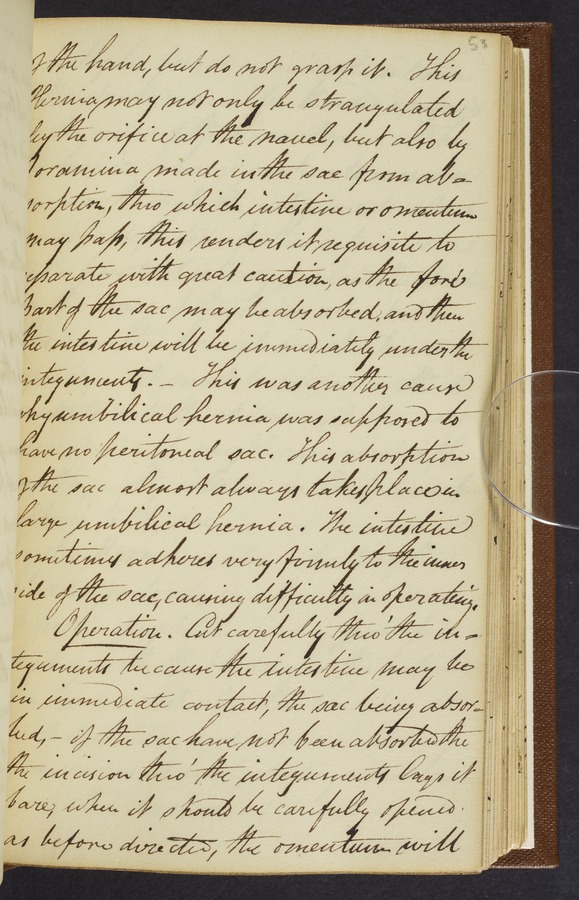 53
of the hand, but do not grasp it. This
Hernia may not only be strangulated
by the orifice at the navel, but also by
foramina made in the sac from ab=
sorption, thro which intestine or omentum
may pass, this renders it requisite to
separate with great caution, as the fore
part of the sac may be absorbed, and then
the intestine will be immediately under the
integuments. – This was another cause
why umbilical hernia was supposed to
have no peritoneal sac. This absorption
of the sac almost always takes place in
large umbilical hernia. The intestine
sometimes adheres very firmly to the inner
side of the sac, causing difficulty in operating.
Operation. Cut carefully thro' the in=
teguments because the intestine may be
in immediate contact, the sac being absor=
bed, – if the sac have not been absorbed the
the incision thro' the integuments lays it
bare, when it should be carefully opened
as before directed, the omentum will